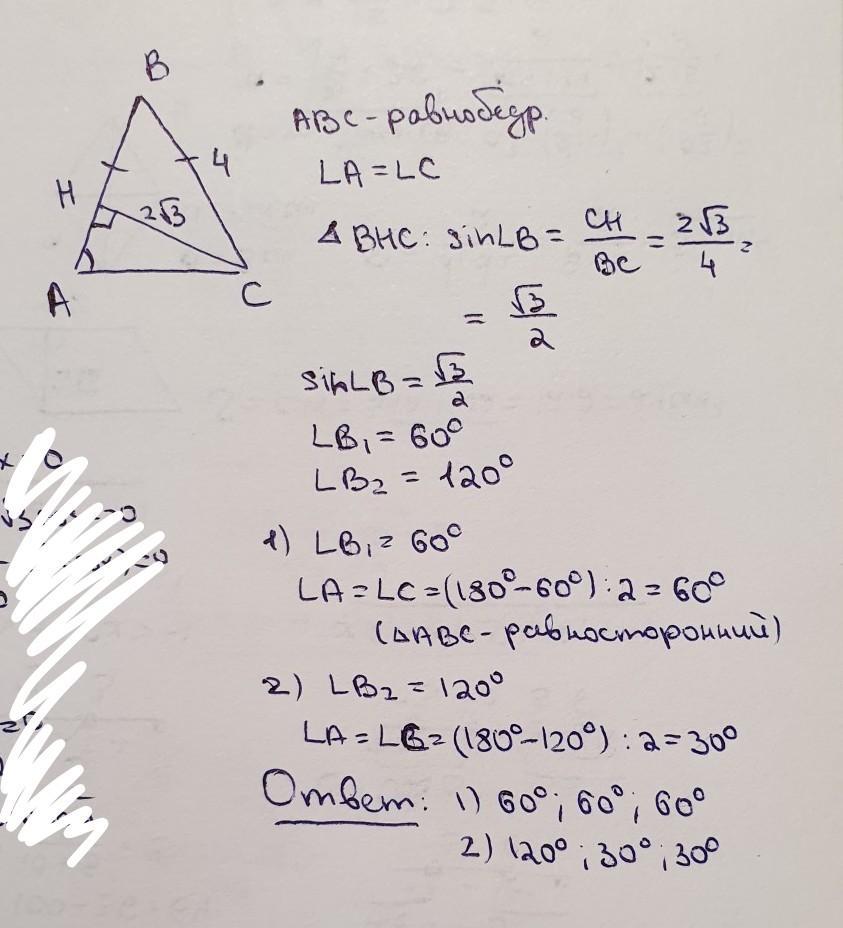 B
H
4
2√3
A
C
ABC - равнобедр.
∠A = ∠C
△ BHC: sin∠B = CH/BC = 2√3/4 =
= √3/2
sin∠B = √3/2
∠B₁ = 60°
∠B₂ = 120°
1) ∠B₁ = 60°
∠A = ∠C = (180° - 60°) : 2 = 60°
(△ABC - равносторонний)
2) ∠B₂ = 120°
∠A = ∠C = (180° - 120°) : 2 = 30°
Ответ: 1) 60°; 60°; 60°
2) 120°; 30°; 30°